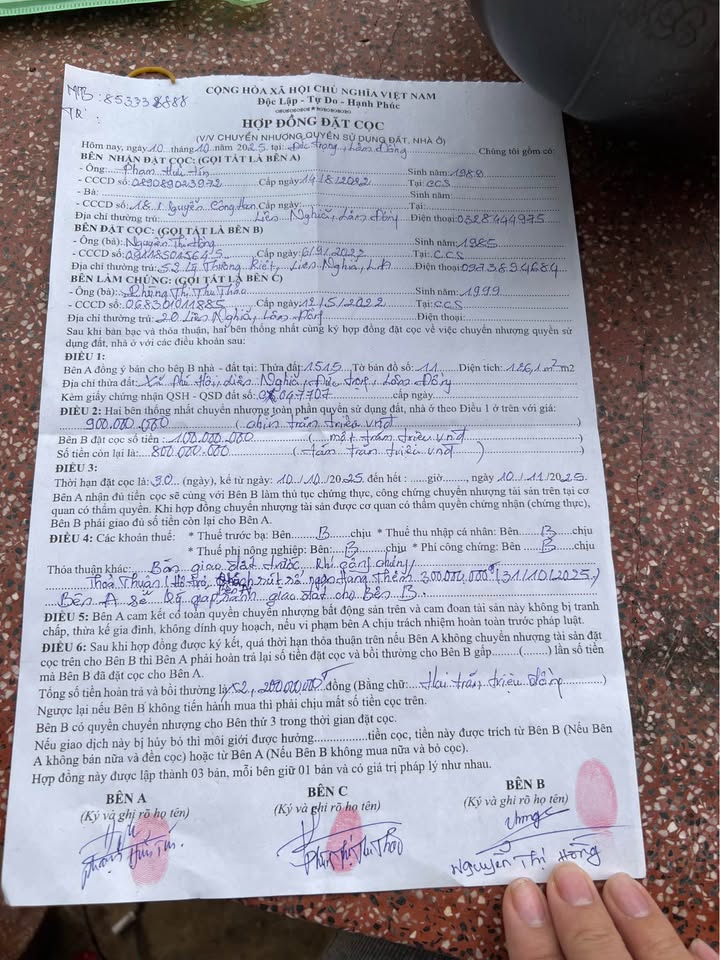 MB: 853338888
TR:
CỘNG HÒA XÃ HỘI CHỦ NGHĨA VIỆT NAM
Độc Lập - Tự Do - Hạnh Phúc
HỢP ĐỒNG ĐẶT CỌC
(V/V CHUYỂN NHƯỢNG QUYỀN SỬ DỤNG ĐẤT, NHÀ Ở)
Hôm nay, ngày 10 tháng 10 năm 2025 tại: Đức Trọng, Lâm Đồng Chúng tôi gồm có:
BÊN NHẬN ĐẶT CỌC: (GỌI TẮT LÀ BÊN A)
- Ông: Phạm Hữu Tín Sinh năm: 1989
- CCCD số: 089089023972 Cấp ngày: 14/8/2022 Tại: CCS
- Bà: Sinh năm:
- CCCD số: 18 Nguyễn Công Hoan Cấp ngày: Tại:
Địa chỉ thường trú: Liên Nghĩa, Lâm Đồng Điện thoại: 0328444975
BÊN ĐẶT CỌC: (GỌI TẮT LÀ BÊN B)
- Ông (bà): Nguyễn Thị Hồng Sinh năm: 1985
- CCCD số: Cấp ngày: 6/9/2022 Tại: CCS
Địa chỉ thường trú: 52 Lý Thường Kiệt, Liên Nghĩa, LĐ Điện thoại: 0973894684
BÊN LÀM CHỨNG: (GỌI TẮT LÀ BÊN C)
- Ông (bà): Phùng Thị Thu Thảo Sinh năm: 1999
- CCCD số: 068301011885 Cấp ngày: 12/5/2022 Tại: CCS
Địa chỉ thường trú: 20 Liên Nghĩa, Lâm Đồng Điện thoại:
Sau khi bàn bạc và thỏa thuận, hai bên thống nhất cùng ký hợp đồng đặt cọc về việc chuyển nhượng quyền sử
dụng đất, nhà ở với các điều khoản sau:
ĐIỀU 1:
Bên A đồng ý bán cho bên B nhà - đất tại: Thửa đất 1515 Tờ bản đồ số: 11 Diện tích: 126,1 m² m2
Địa chỉ thửa đất: Xã Phú Hội, Liên Nghĩa, Đức Trọng, Lâm Đồng
Kèm giấy chứng nhận QSH - QSD đất số: 047707 cấp ngày
ĐIỀU 2: Hai bên thống nhất chuyển nhượng toàn phần quyền sử dụng đất, nhà ở theo Điều 1 ở trên với giá:
900.000.000 (chín trăm triệu vnđ)
Bên B đặt cọc số tiền: 100.000.000 (một trăm triệu vnđ)
Số tiền còn lại là: 800.000.000 (tám trăm triệu vnđ)
ĐIỀU 3:
Thời hạn đặt cọc là: 30 (ngày), kể từ ngày: 10/10/2025 đến hết: ......giờ......., ngày 10/11/2025.
Bên A nhận đủ tiền cọc sẽ cùng với Bên B làm thủ tục chứng thực, công chứng chuyển nhượng tài sản trên tại cơ
quan có thẩm quyền. Khi hợp đồng chuyển nhượng tài sản được cơ quan có thẩm quyền chứng nhận (chứng thực),
Bên B phải giao đủ số tiền còn lại cho Bên A.
ĐIỀU 4: Các khoản thuế: * Thuế trước bạ: Bên B chịu * Thuế thu nhập cá nhân: Bên B chịu
* Thuế phí nông nghiệp: Bên B chịu * Phí công chứng: Bên B chịu
Thỏa thuận khác: Bàn giao đất trước khi công chứng
Thỏa Thuận Hỗ trợ rút sổ ngân hàng Thêm 300.000.000 (31/10/2025)
Bên A sẽ ký giao đất cho Bên B.
ĐIỀU 5: Bên A cam kết có toàn quyền chuyển nhượng bất động sản trên và cam đoan tài sản này không bị tranh
chấp, thừa kế gia đình, không dính quy hoạch, nếu vi phạm bên A chịu trách nhiệm hoàn toàn trước pháp luật.
ĐIỀU 6: Sau khi hợp đồng được ký kết, quá thời hạn thỏa thuận trên nếu Bên A không chuyển nhượng tài sản đặt
cọc trên cho Bên B thì Bên A phải hoàn trả lại số tiền đặt cọc và bồi thường cho Bên B gấp.........(........) lần số tiền
mà Bên B đã đặt cọc cho Bên A.
Tổng số tiền hoàn trả và bồi thường là: 200.000.000đ đồng (Bằng chữ: Hai trăm triệu đồng)
Ngược lại nếu Bên B không tiến hành mua thì phải chịu mất số tiền cọc trên.
Bên B có quyền chuyển nhượng cho Bên thứ 3 trong thời gian đặt cọc.
Nếu giao dịch này bị hủy bỏ thì môi giới được hưởng....................tiền cọc, tiền này được trích từ Bên B (Nếu Bên
A không bán nữa và đền cọc) hoặc từ Bên A (Nếu Bên B không mua nữa và bỏ cọc).
Hợp đồng này được lập thành 03 bản, mỗi bên giữ 01 bản và có giá trị pháp lý như nhau.
BÊN A BÊN C BÊN B
(Ký và ghi rõ họ tên) (Ký và ghi rõ họ tên) (Ký và ghi rõ họ tên)
Phạm Hữu Tín. Phùng Thị Thu Thảo Nguyễn Thị Hồng